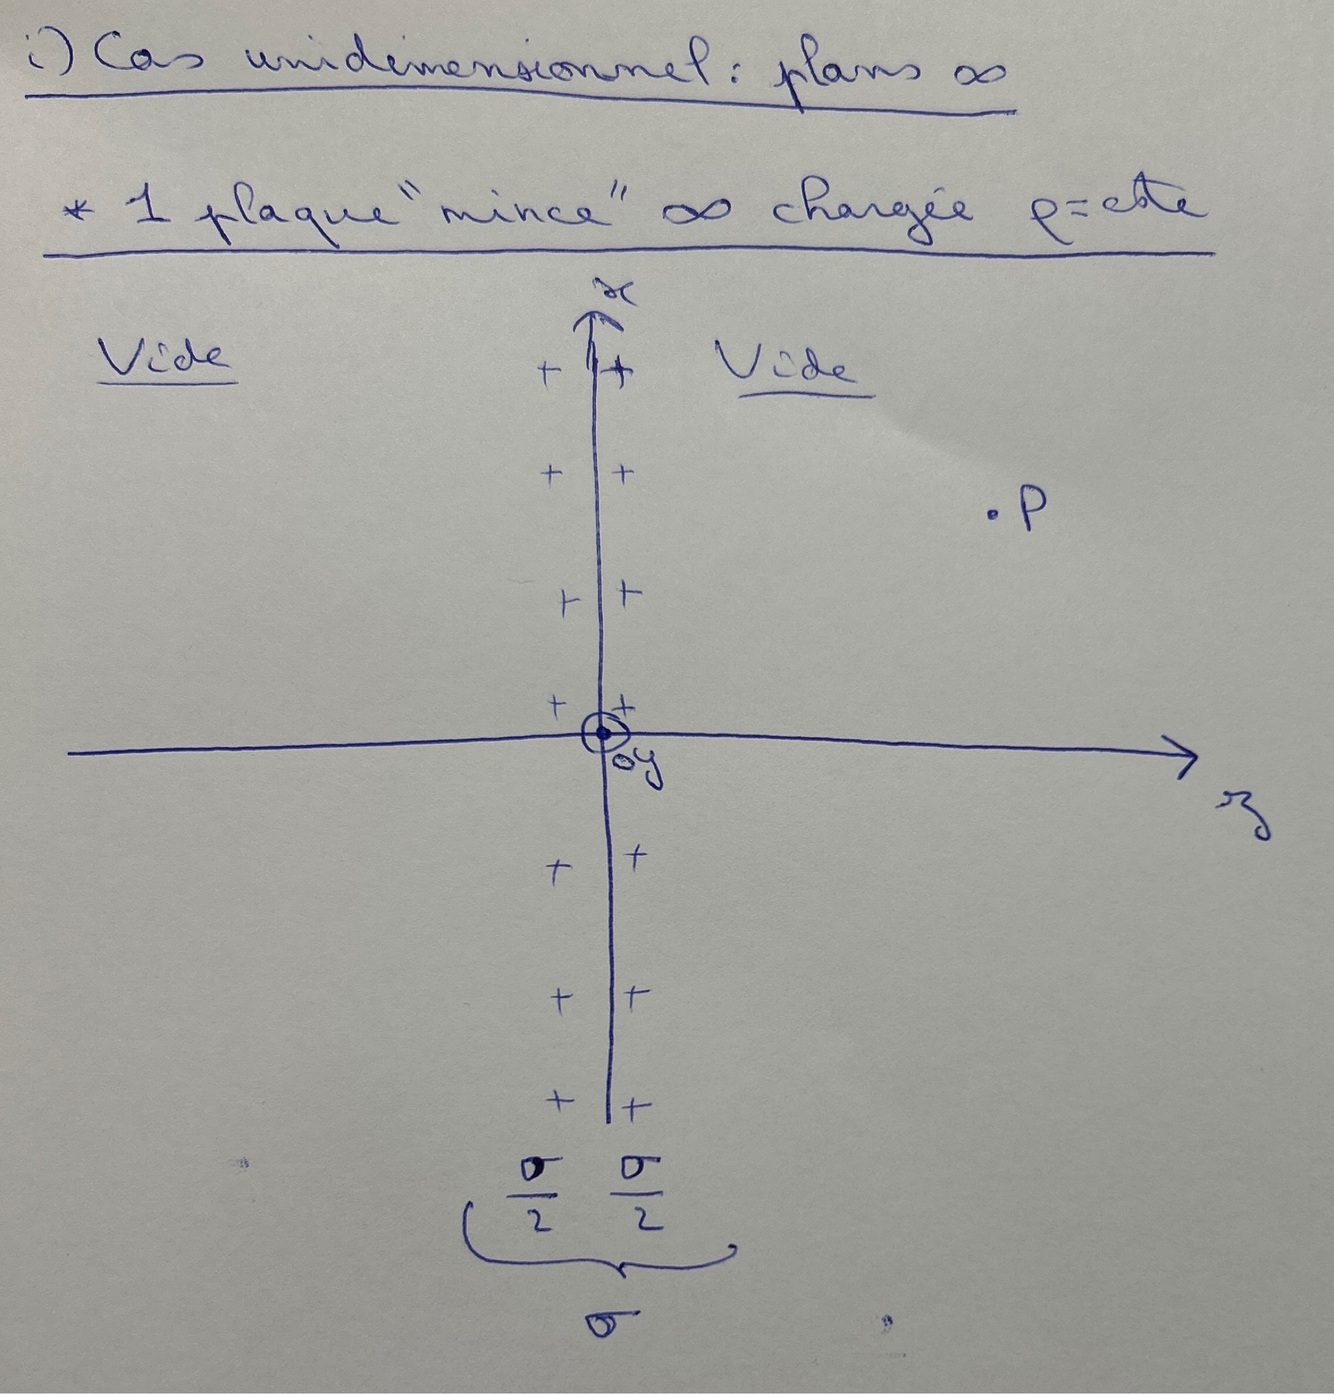 i) Cas unidimensionnel : plans ∞
* 1 plaque "mince" ∞ chargée ρ=cste
x
Vide + + Vide
+ +
. P
+ +
+ +
oy
z
+ +
+ +
+ +
σ/2 σ/2
σ